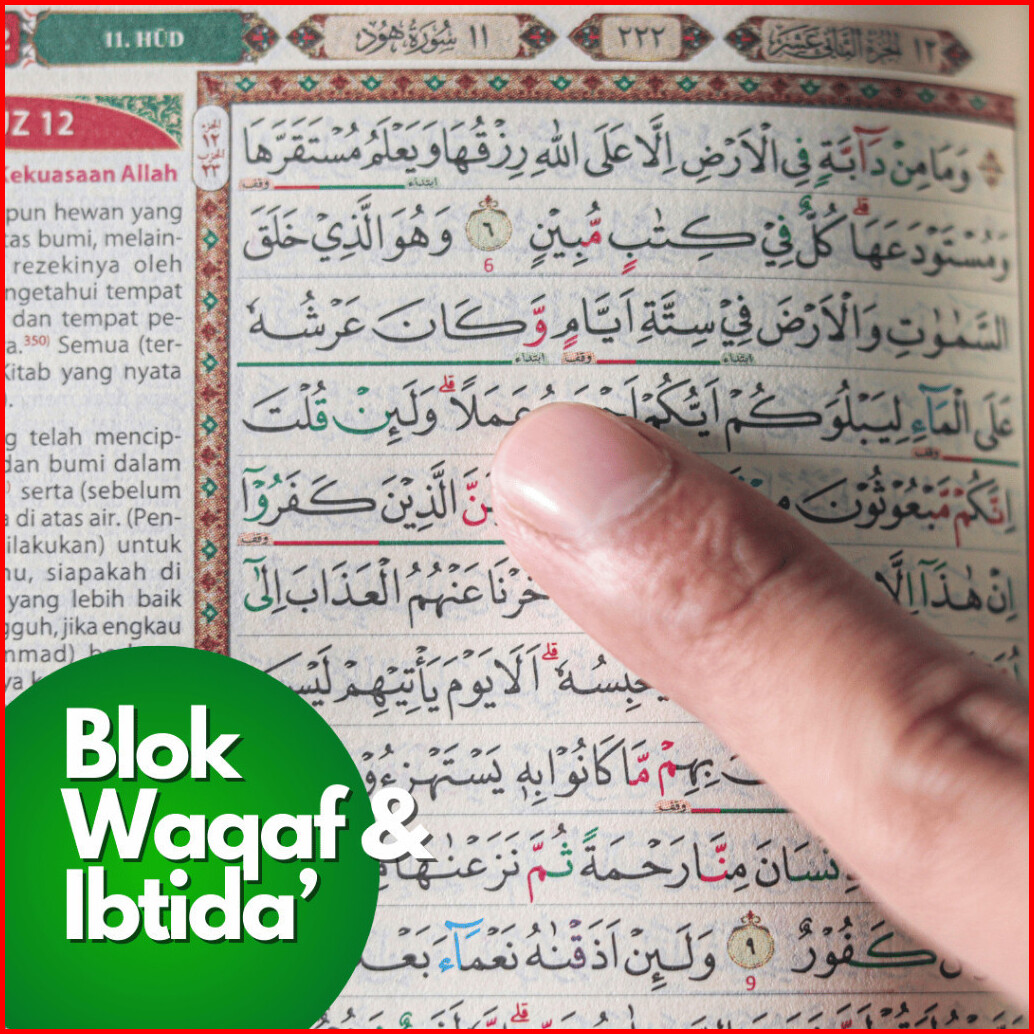 11. HŪD
١١ سُوْرَةُ هُوْد
٢٢٢
الجزء الثاني عشر ١٢
JZ 12
الجزء
١٢
الحزب
٢٣
Kekuasaan Allah
pun hewan yang
tas bumi, melain-
rezekinya oleh
ngetahui tempat
dan tempat pe-
a.350) Semua (ter-
Kitab yang nyata
g telah mencip-
dan bumi dalam
serta (sebelum
a di atas air. (Pen-
ilakukan) untuk
nu, siapakah di
yang lebih baik
gguh, jika engkau
mmad)
وَمَا مِنْ دَاۤبَّةٍ فِى الْاَرْضِ اِلَّا عَلَى اللّٰهِ رِزْقُهَا وَيَعْلَمُ مُسْتَقَرَّهَا
ابتداء وقف
وَمُسْتَوْدَعَهَا ۗ كُلٌّ فِيْ كِتٰبٍ مُّبِيْنٍ ٦ وَهُوَ الَّذِيْ خَلَقَ
6
السَّمٰوٰتِ وَالْاَرْضَ فِيْ سِتَّةِ اَيَّامٍ وَّكَانَ عَرْشُهٗ
ابتداء وقف ابتداء
عَلَى الْمَاۤءِ لِيَبْلُوَكُمْ اَيُّكُمْ عَمَلًا ۗ وَلَىِٕنْ قُلْتَ
وقف
اِنَّكُمْ مَّبْعُوْثُوْنَ الَّذِيْنَ كَفَرُوْٓا
وقف
اِنْ هٰذَآ عَنْهُمُ الْعَذَابَ اِلٰٓى
يَحْبِسُهٗ ۗ اَلَا يَوْمَ يَأْتِيْهِمْ لَيْسَ
بِهِمْ مَّا كَانُوْا بِهٖ يَسْتَهْزِءُوْ
وقف
مِنَّا رَحْمَةً ثُمَّ نَزَعْنٰهَا
كَفُوْرٌ ٩ وَلَىِٕنْ اَذَقْنٰهُ نَعْمَاۤءَ بَعْ
9
Blok
Waqaf &
Ibtida’